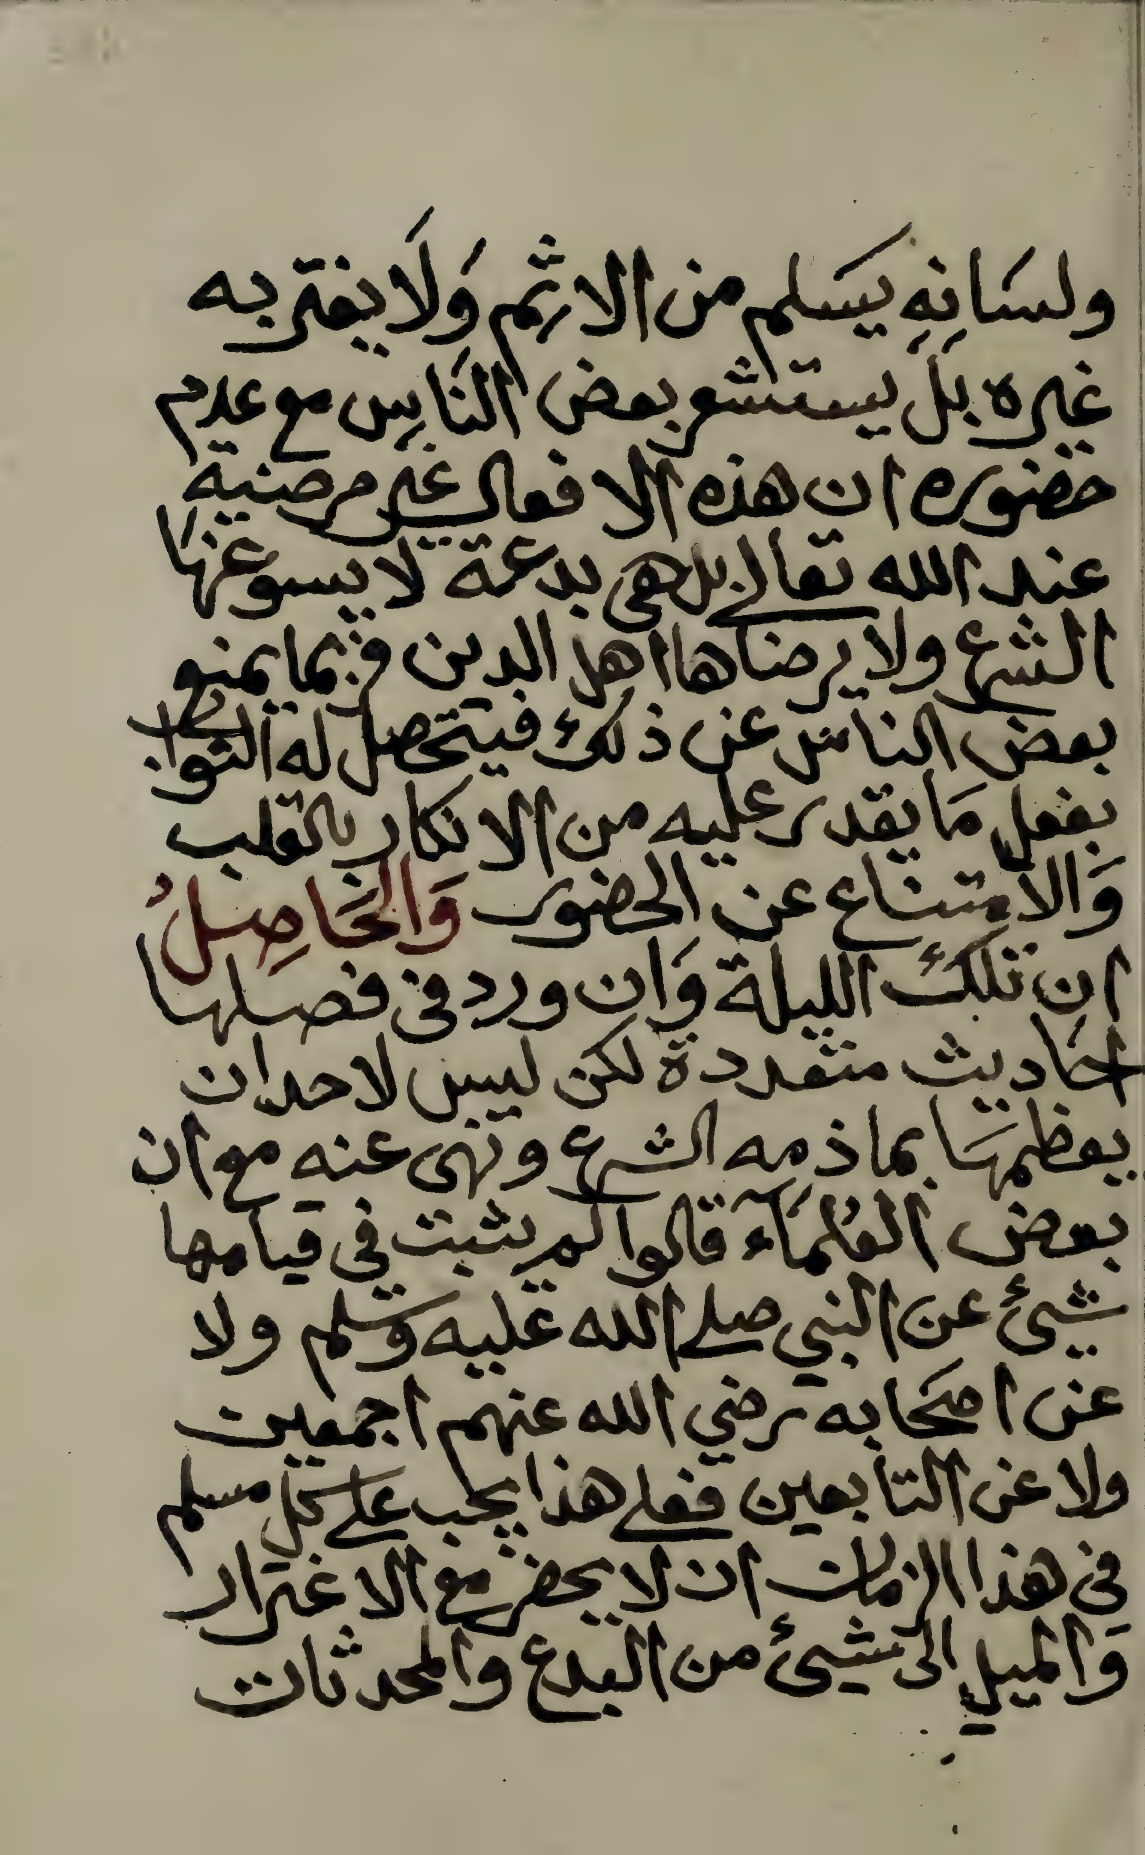 ولسَانِهِ يسَلم من الاثم وَلَا يغتر به
غيره بَل يستشعر بعض النَاسِ مع عدم
حضوره ان هذه الافعال غير مرضية
عند الله تعالى بل هى بدعة لا يسوغها
الشرع ولا يرضاها اهل الدين فربما يمنع
بعض الناس عن ذلك فيتحصل له الثواب
بفعل مَا يقدر عليه من الانكار بالقلب
وَالامتناع عن الحضور وَالحَاصِلُ
ان تلك الليلة وَان ورد فى فضلها
احَاديث متعددة لكن ليس لاحد ان
يعظمهَا بما ذمه الشرع ونهى عنه مع ان
بعض العُلمَآء قالوا لم يثبت فى قيامها
شيئ عن النبي صلى الله عليه وسَلم ولا
عن اصحَابه رضي الله عنهم اجمعين
ولا عن التابعين فعلى هذا يجب على كل مسلم
فى هذا الزمان ان لا يحضر مع الاغترار
وَالميل الى شيئ من البدع والمحدثات